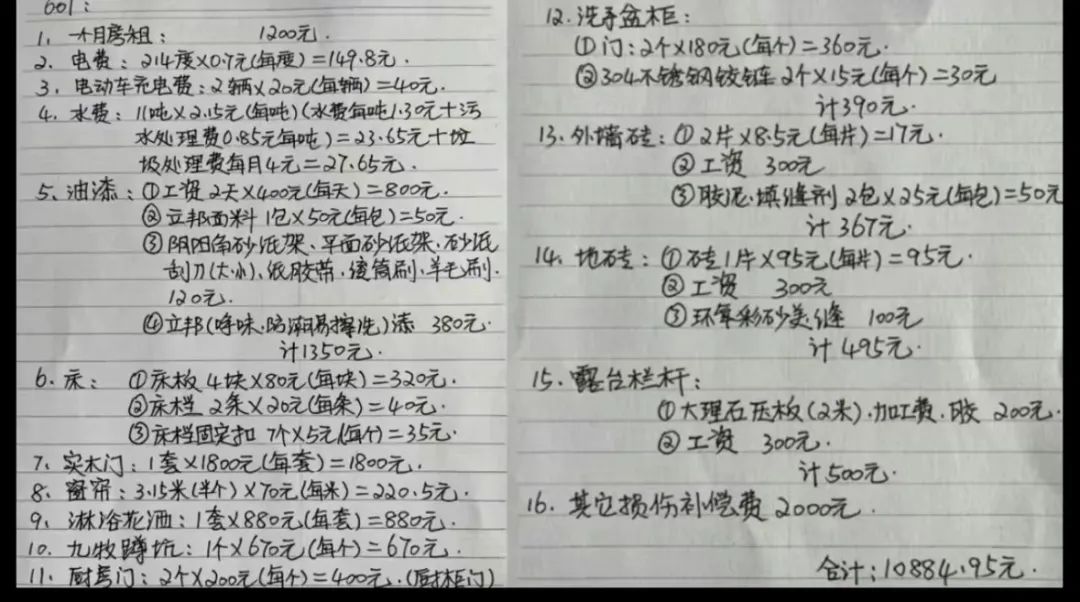 601：
1、一个月房租： 1200元.
2、电费：214度×0.7元(每度)=149.8元.
3、电动车充电费：2辆×20元(每辆)=40元.
4、水费：11吨×2.15元(每吨)(水费每吨1.30元+污
水处理费0.85元每吨)=23.65元+垃
圾处理费每月4元=27.65元.
5、油漆：①工资 2天×400元(每天)=800元.
②立邦面料 1包×50元(每包)=50元.
③阴阳角砂纸架、平面砂纸架、砂纸
刮刀(大小)、纸胶带、滚筒刷、羊毛刷.
120元.
④立邦(净味.防潮易擦洗)漆 380元.
计1350元.
6、床： ①床板 4块×80元(每块)=320元.
②床栏 2条×20元(每条)=40元.
③床栏固定扣 7个×5元(每个)=35元.
7、实木门：1套×1800元(每套)=1800元.
8、窗帘：3.15米(半个)×70元(每米)=220.5元.
9、淋浴花洒：1套×880元(每套)=880元.
10、九牧蹲坑：1个×670元(每个)=670元.
11、厨房门：2个×200元(每个)=400元.(厨柜门)
12.洗手盆柜：
①门：2个×180元(每个)=360元.
②304不锈钢铰链 2个×15元(每个)=30元
计390元.
13.外墙砖：①2片×8.5元(每片)=17元.
②工资 300元
③胶泥.填缝剂 2包×25元(每包)=50元
计367元.
14.地砖：①砖1片×95元(每片)=95元.
②工资 300元
③环氧彩砂美缝 100元
计495元.
15.露台栏杆：
①大理石压板(2米).加工费.胶 200元.
②工资 300元.
计500元.
16.其它损伤补偿费 2000元.
合计：10884.95元.